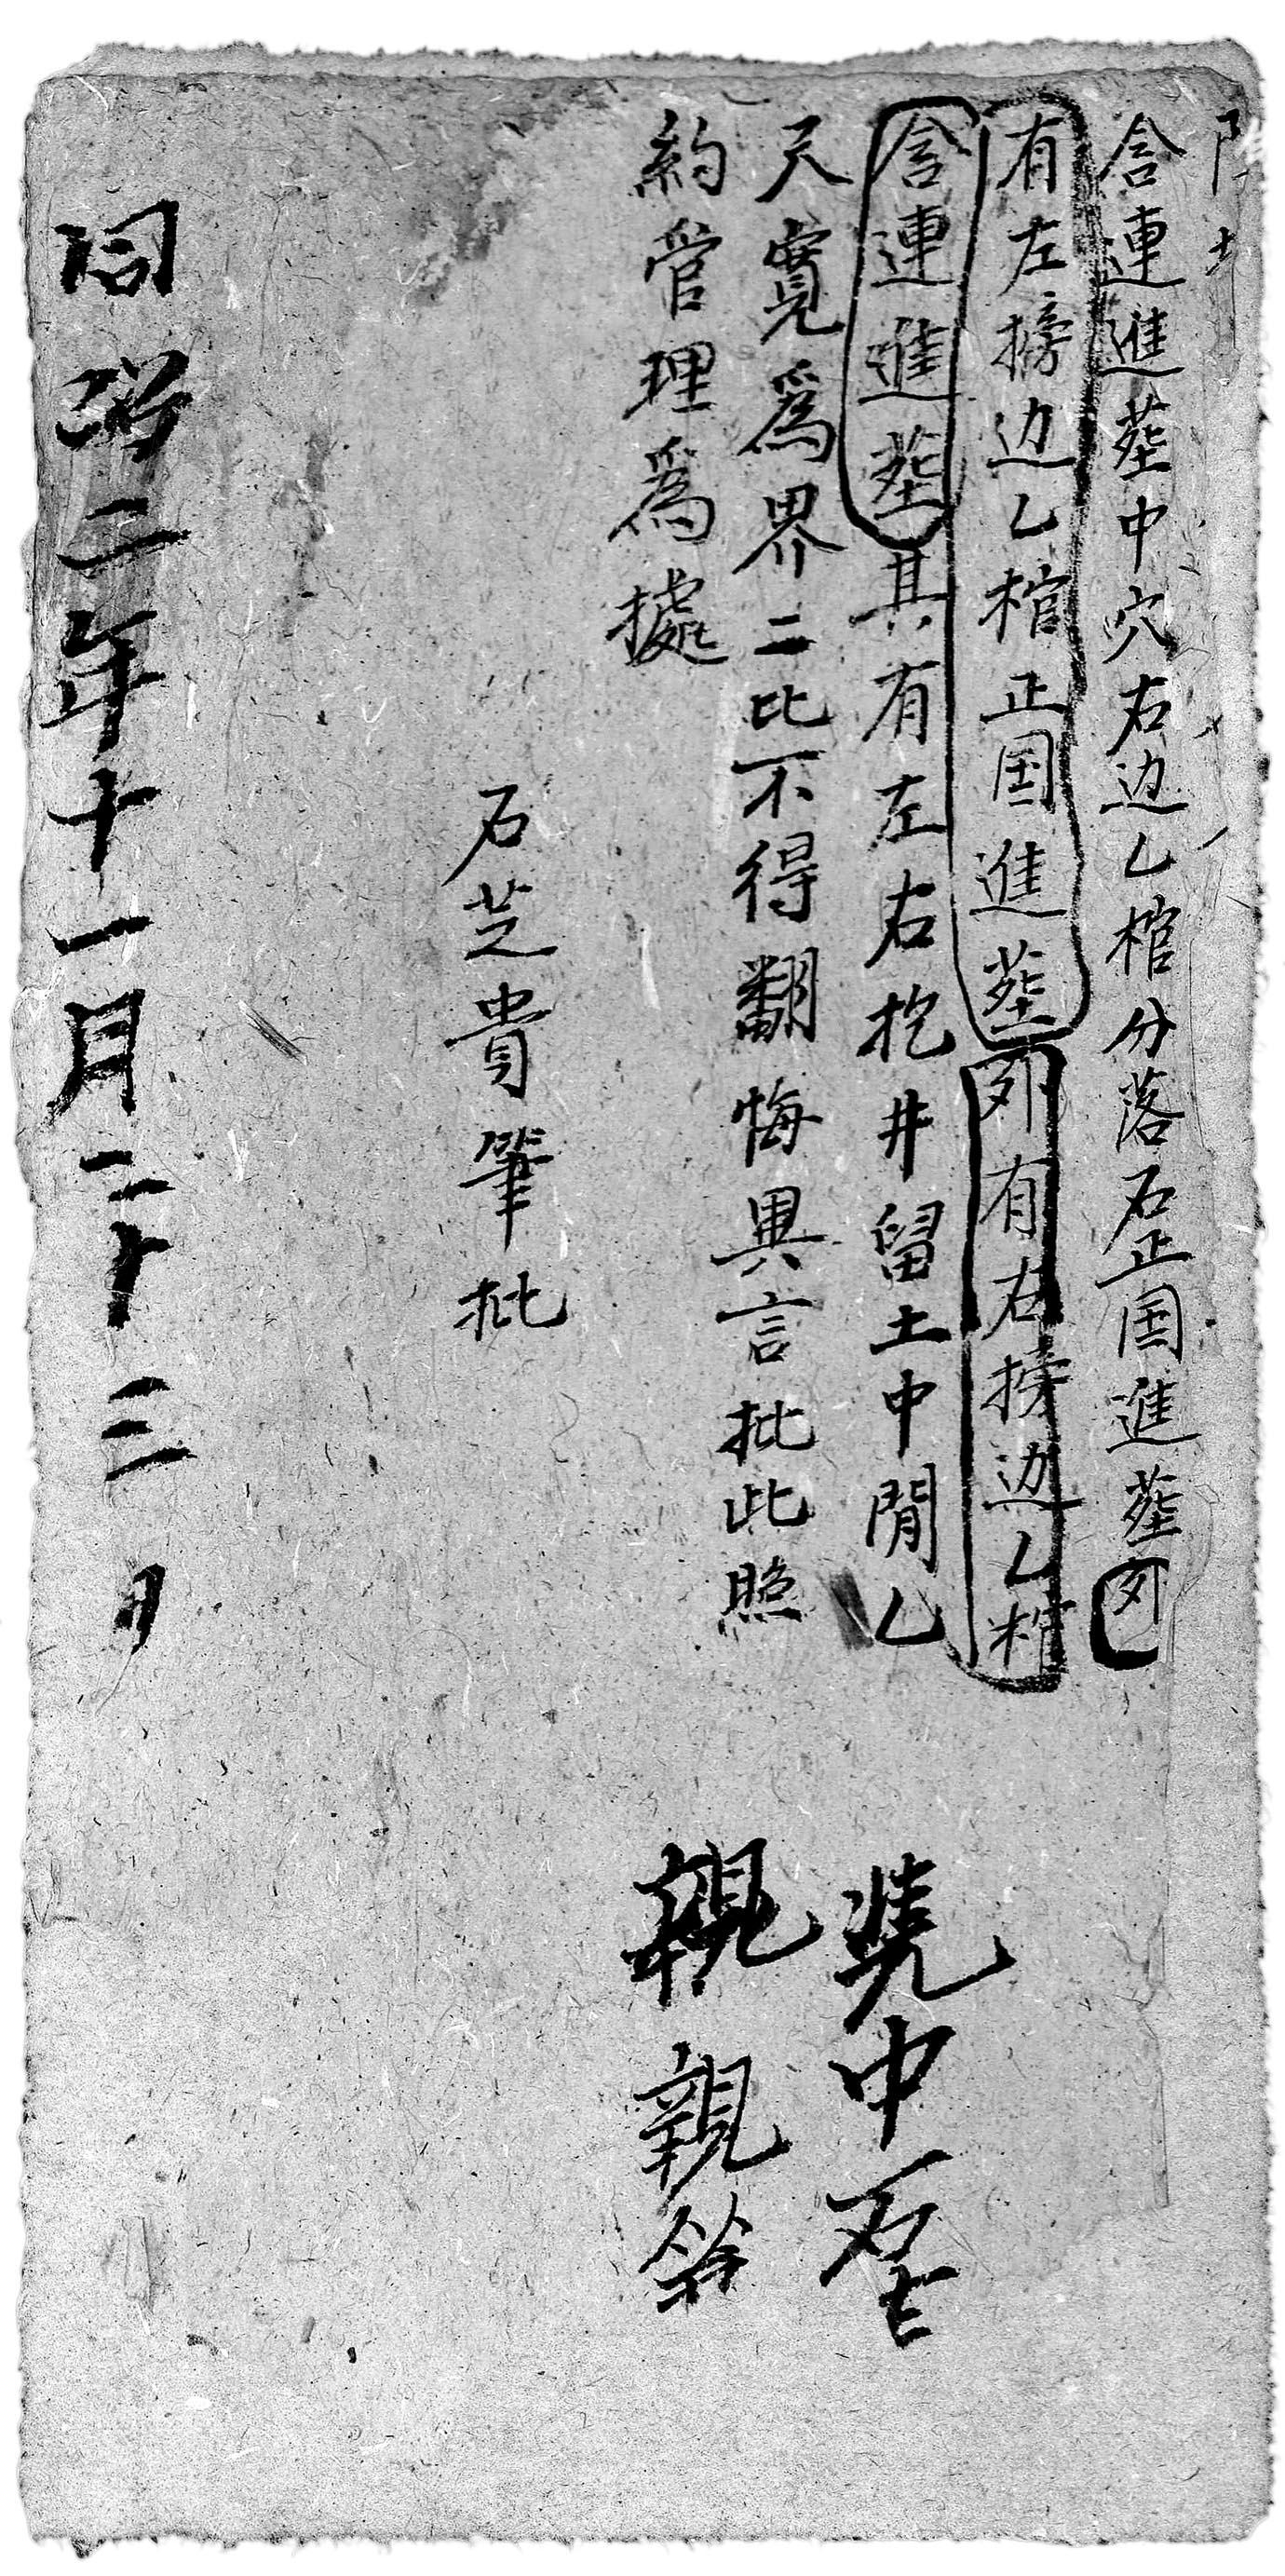 含連進塟中穴右边乙棺分落石正国進塟外
有左搒边乙棺正国進塟外有右搒边乙棺
含連進塟其有左右挖井留土中間乙
尺寬爲界二比不得翻悔異言批此照
約管理爲據
憑中
親親
石芝貴筆批
同治二年十一月二十三日